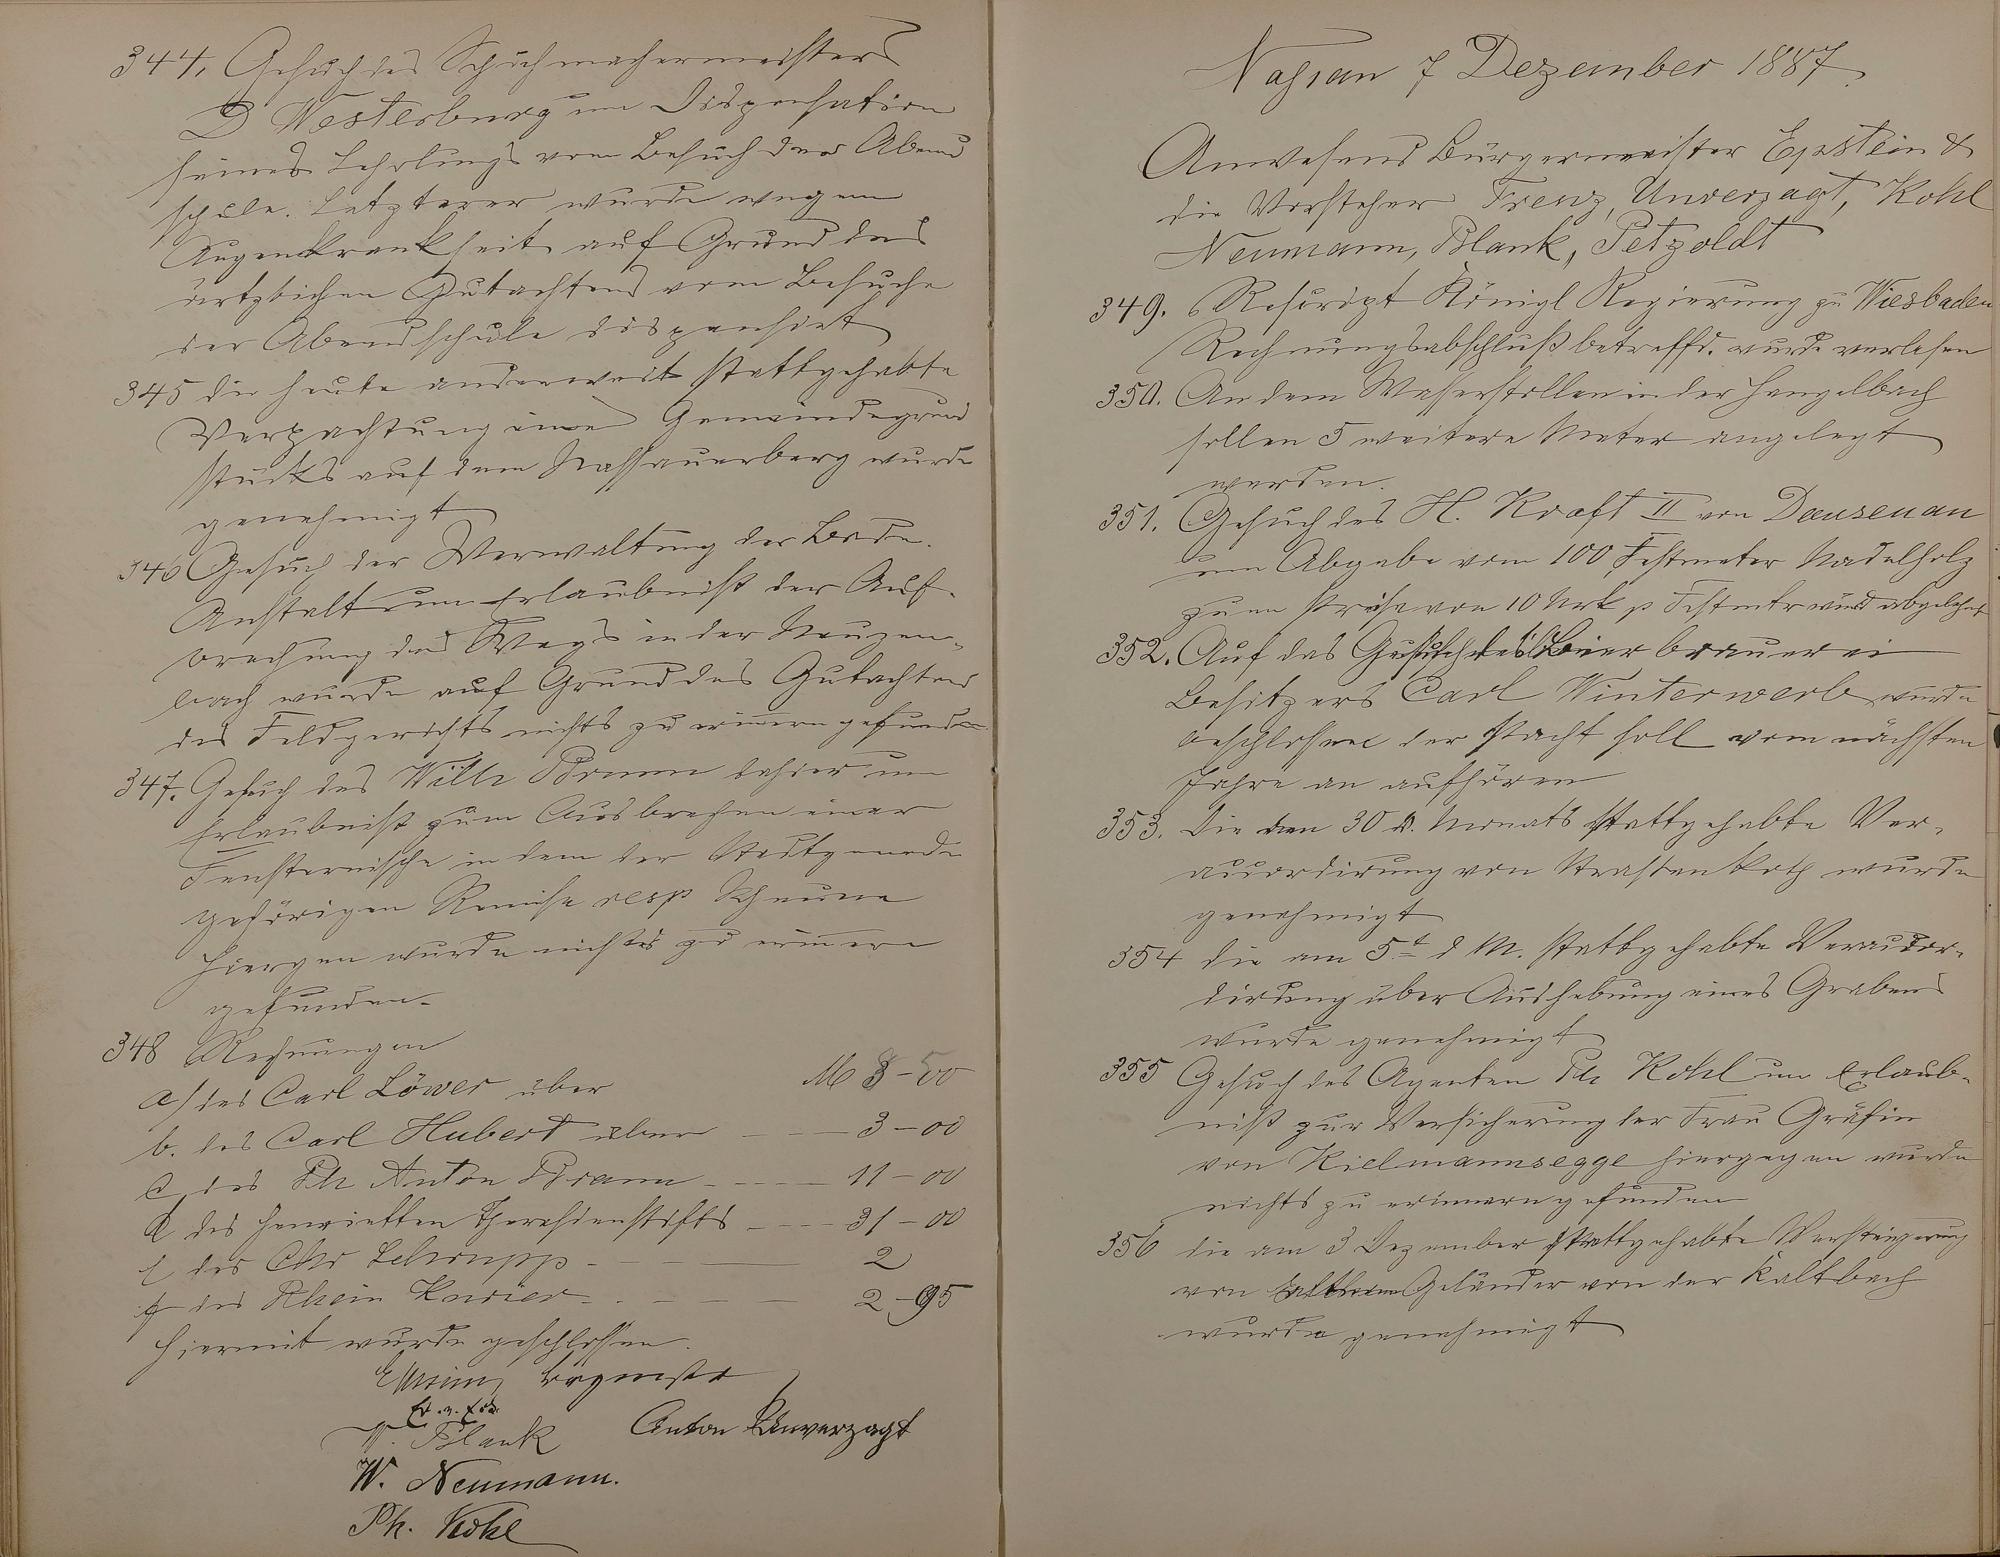 344, Gesuch des Schuhmachermeisters
D Westerburg um Dispensation
seines Lehrlings vom Besuch der Abend
schule. Letzterer wurde wegen
Augenkrankheit auf Grund des
ärtzlichen Gutachtens vom Besuche
der Abendschule dispensirt
345 die heute anderweit stattgehabte
Verpachtung eines Gemeindegrund
stücks auf dem Nassauerberg wurde
genehmigt
346 Gesuch der Verwaltung der Bade-
Anstalt um Erlaubniß der Auf-
brechung des Wegs in der Neuzen-
bach wurde auf Grund des Gutachtens
des Feldgerichts nichts zu erinnern gefunden
347. Gesuch des Wilh Bonn dahier um
Erlaubniß zum Ausbrechen einer
Fensternische in dem der Stadtgemeinde
gehörigen Remise resp Scheune
hiergegen wurde nichts zu erinnern
gefunden-
348 Rechnungen
a/ des Carl Löwer über M 3-50
b. des Carl Hubert über --- 3-00
c, des Ph Anton Braun ---- 11-00
d des Henrietten Theresienstifts --- 31-00
e des Chr Schrupp --- 2
f des Rhein Kurier --- 2-95
Hiermit wurde geschlossen.
Blank Anton Unverzagt
W. Neumann.
Ph. Kohl
Nassau 7 Dezember 1887
Anwesend Bürgermeister Epstein &
die Vorsteher Trenz, Unverzagt, Kohl
Neumann, Blank, Petzoldt
349. Rescript Königl Regierung zu Wiesbaden
Rechnungsabschluß betreffd. wurde verlesen
350. An dem Wasserstollen in der Hengelbach
sollen 5 weitere Meter angelegt
werden.
351. Gesuch des H. Kraft II von Dausenau
um Abgabe vom 100 Festmeter Nadelholz
zum Preise von 10 Mrk p Festmtr wird abgelehnt
352. Auf das Gesuch des Bierbrauerei
Besitzers Carl Winterwerb wurde
beschlossen der Pacht soll vom nächsten
Jahre an aufhören
353. Die den 30 d. Monats stattgehabte Ver-
accordirung von Strassenkoth wurde
genehmigt
354 die am 5t d M. stattgehabte Veraccor-
dirung über Aushebung eines Grabens
wurde genehmigt
355 Gesuch des Agenten Ph Kohl um Erlaub-
niß zur Versicherung der Frau Gräfin
von Kielmannsegge hiergegen wurde
nichts zu erinnern gefunden
356 die am 3 Dezember stattgehabte Versteigerung
von Geländer von der Kaltbach
wurde genehmigt